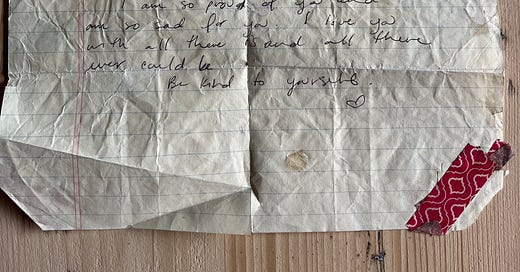 I am so proud of you and
am so sad for you. I love you
with all there is and all there
ever could be
Be kind to yourself.